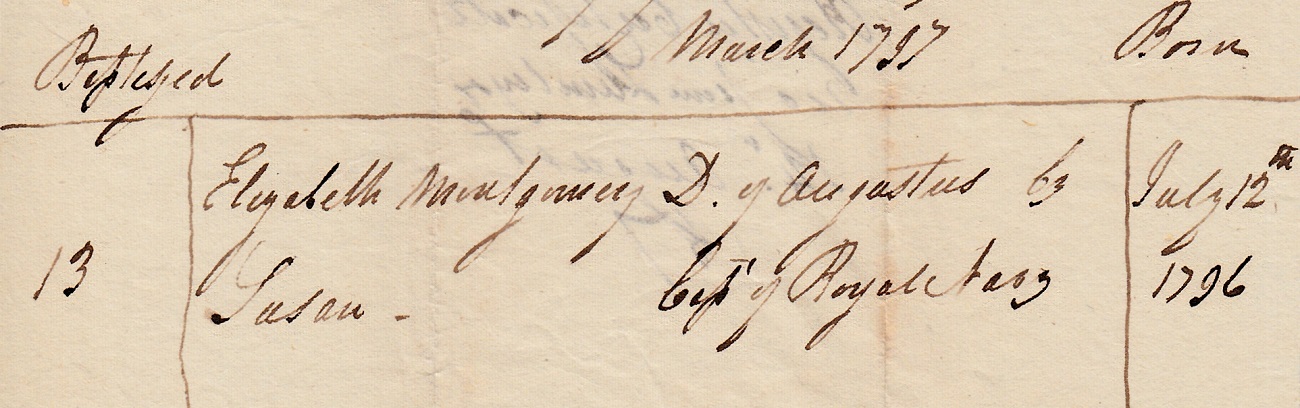 March 1797 Born
Baptized
Elizabeth Montgomery D. of Augustus by July 12th
13 Susan - Capt of Royal Navy 1796